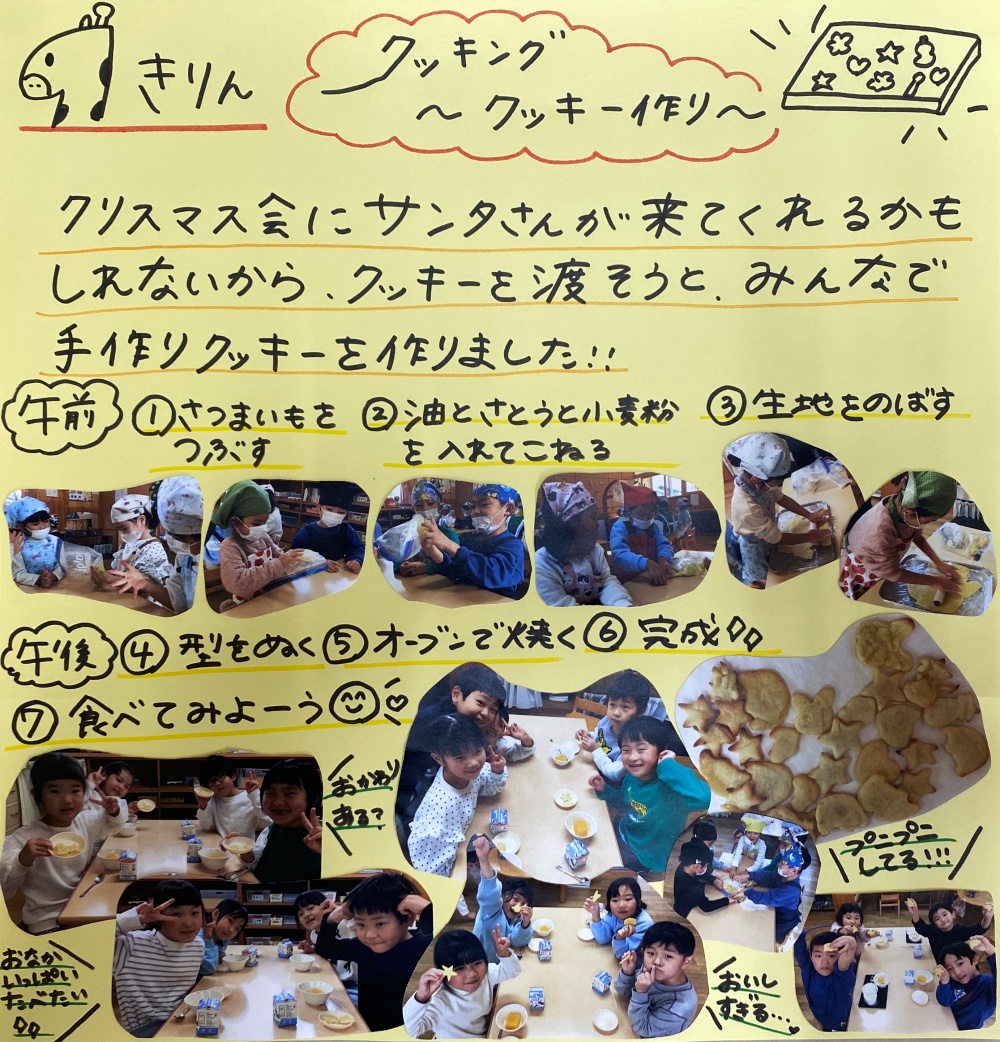 きりん
クッキング
～クッキー作り～
クリスマス会にサンタさんが来てくれるかも
しれないから、クッキーを渡そうと、みんなで
手作りクッキーを作りました!!
午前
①さつまいもを
つぶす
②油とさとうと小麦粉
を入れてこねる
③生地をのばす
午後
④型をぬく
⑤オーブンで焼く
⑥完成
⑦食べてみよーう
おかわり
ある?
プニプニ
してる!!!
おなか
いっぱい
たべたい
おいし
すぎる…